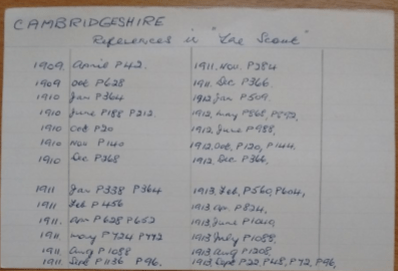 CAMBRIDGESHIRE
References in "The Scout"
1909. April P42. 1911. Nov. P284
1909 Oct P628 1911. Dec P366.
1910 Jan P364 1912 Jan P509.
1910 June P188 P212. 1912, May P868, P892,
1910 Oct P20 1912 June P988,
1910 Nov P140 1912, Oct, P120, P144,
1910 Dec P268 1912, Dec P366,
1911 Jan P338 P364 1913, Feb, P560, P604,
1911 Feb P456 1913 Ap. P824,
1911. Apr P628 P652 1913 June P1020,
1911 May P724 P772 1913 July P1088,
1911. Aug P1088 1913 Aug P1208,
1911. Sept P1136 P96. 1913, Sept P22, P48, P72, P96,